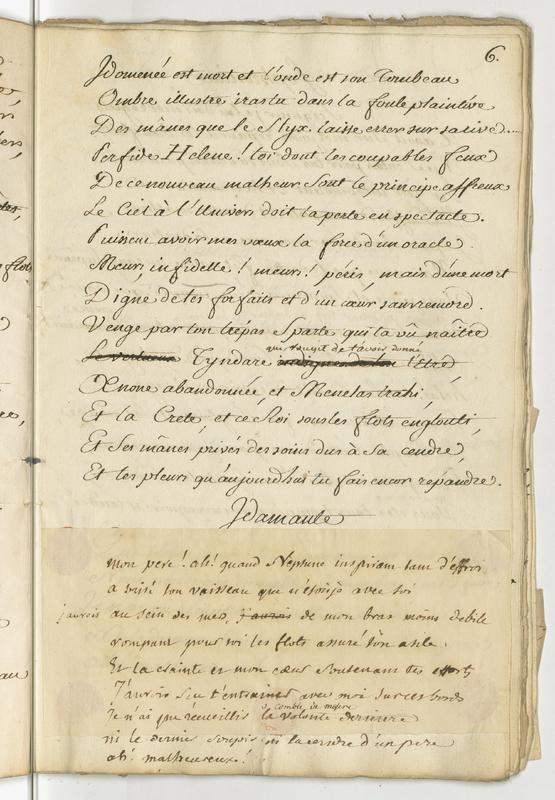 6.
Idomenée est mort et l'onde est son Tombeau
Ombre illustre iras tu dans la foule plaintive
Des mânes que le Styx laisse errer sur sa rive....
Perfide Helene! toi dont les coupables feux
De ce nouveau malheur sont le principe affreux
Le Ciel à l'Univers doit ta perte en spectacle.
Puissent avoir mes vœux la force d'un oracle.
Meurs infidelle! meurs! péris, mais d'une mort
Digne de tes forfaits et d'un cœur sans remord.
Venge par ton trépas Sparte qui t'a vû naître
qui rougit de t'avoir donné
Le vertueux Tyndare l'être
Œnone abandonnée, et Menelas trahi,
Et la Crete, et ce Roi sous les flots englouti,
Et ses mânes privés des soins dus à sa cendre,
Et les pleurs qu'aujourd'hui tu fais encor répandre.
Idamante
mon pere! ah! quand Neptune inspirant tant d'effroi
a brisé ton vaisseau que n'étois je avec toi
j'aurois au sein des mers, j'aurois de mon bras moins debile
rompant pour toi les flots assuré ton asile.
Et la crainte et mon cœur soutenant tes efforts
J'aurois sçu t'entrainer avec moi sur ces bords
ô comble de misere
Je n'ai pu recueillir la volonté derniere
ni le dernier soupir ni la cendre d'un pere
ah! malheureux!